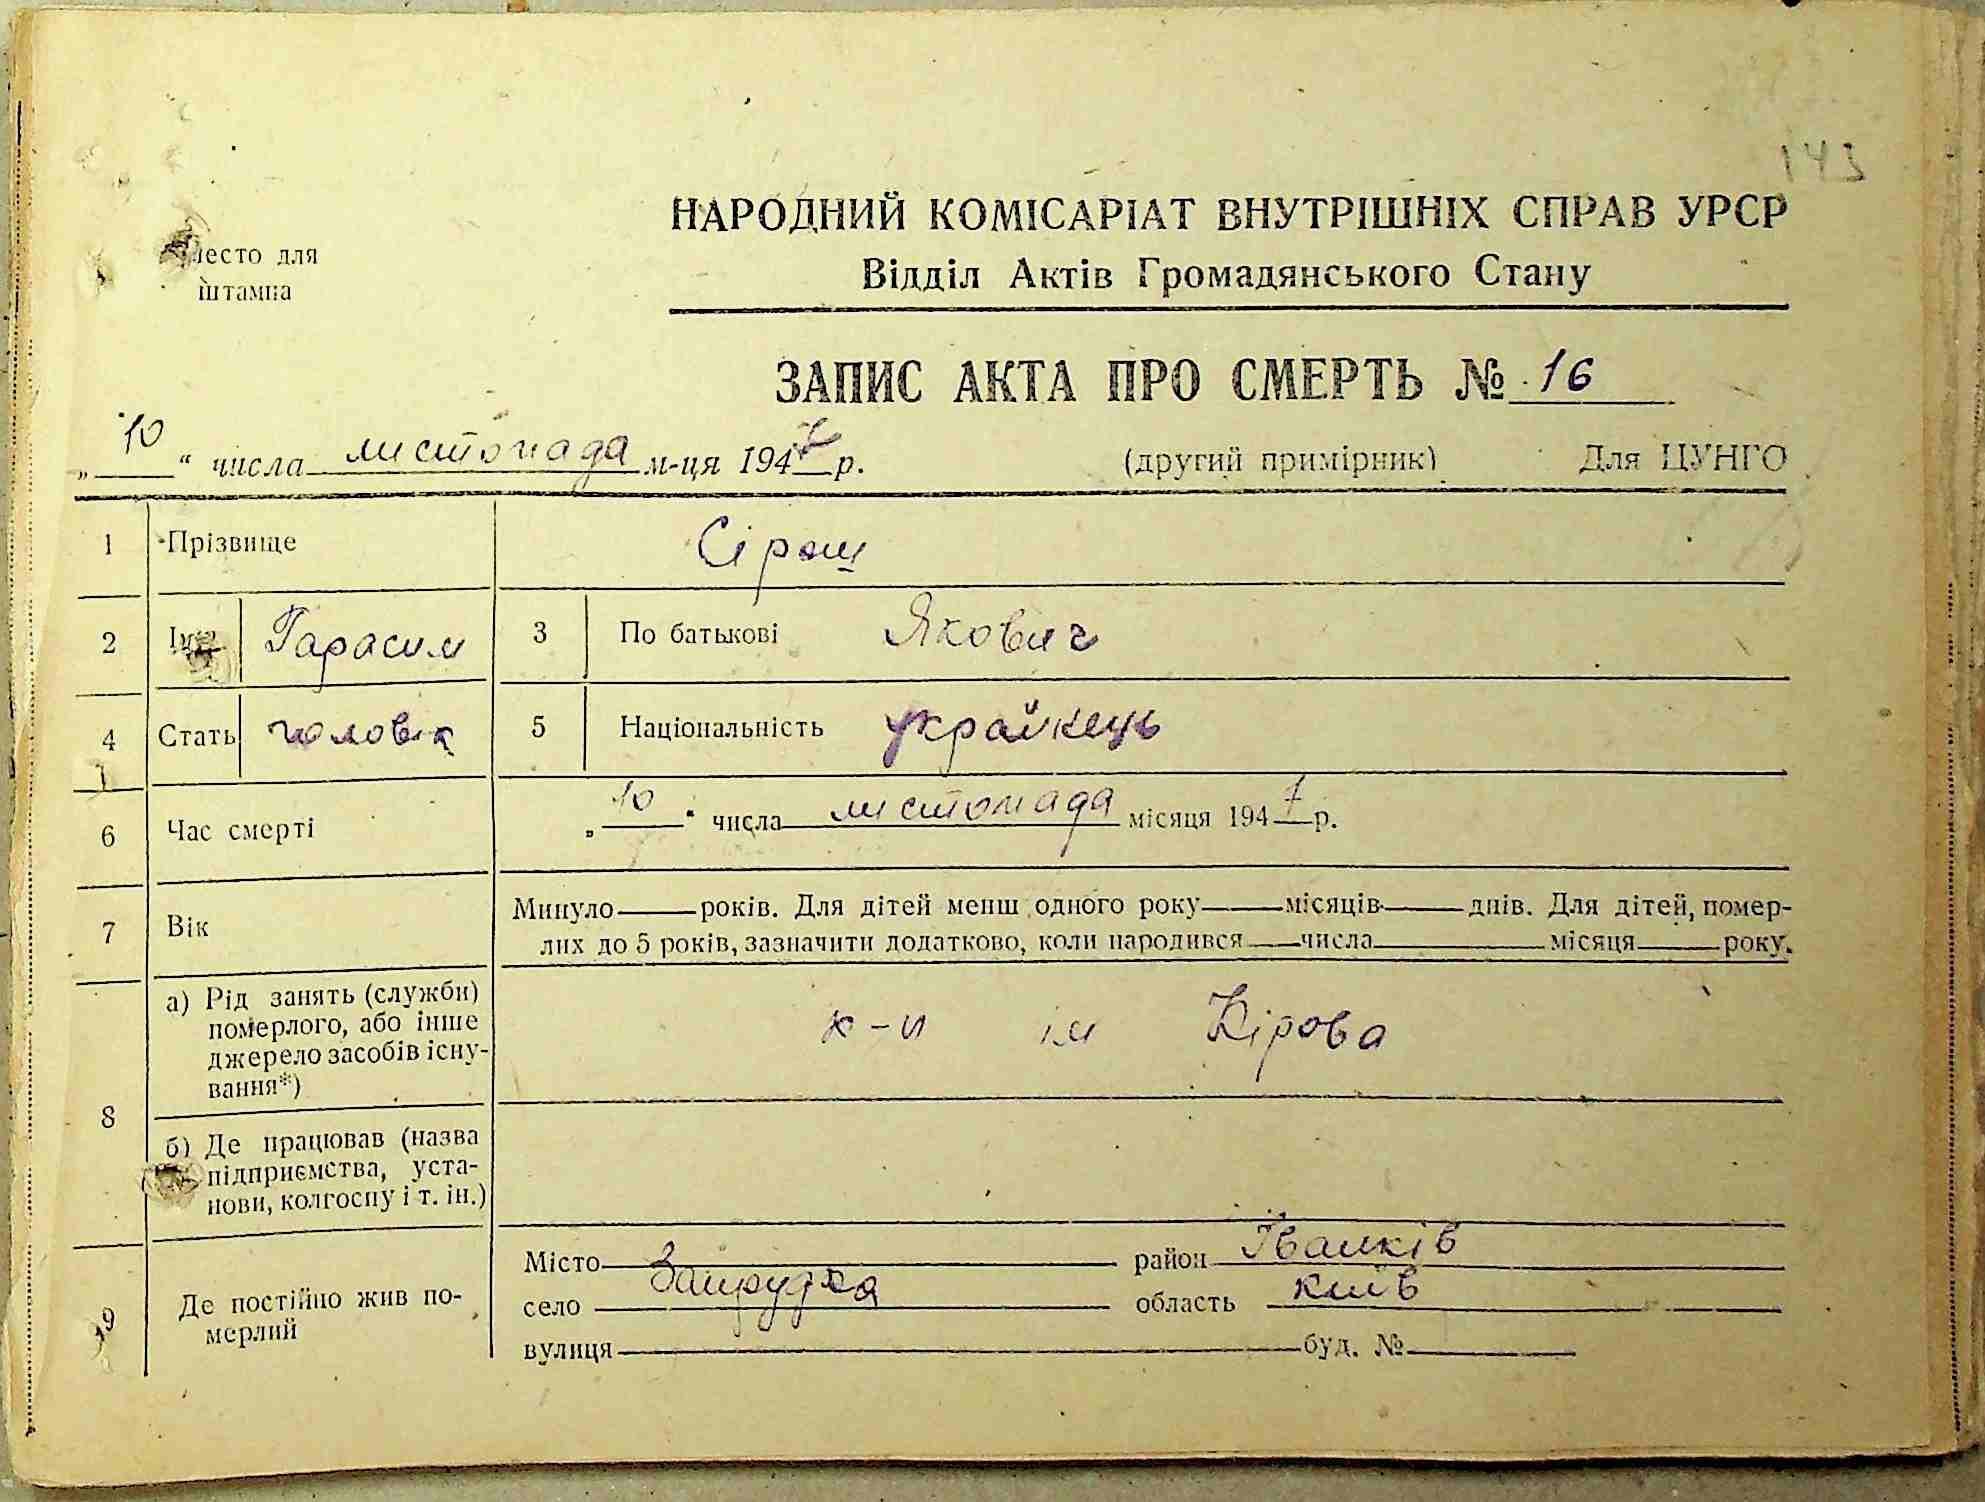 143
НАРОДНИЙ КОМІСАРІАТ ВНУТРІШНІХ СПРАВ УРСР
Відділ Актів Громадянського Стану
Место для
штампа
ЗАПИС АКТА ПРО СМЕРТЬ № 16
„10“ числа листопада м-ця 1947 р.
(другий примірник) Для ЦУНГО
1 Прізвище Сіраш
2 Імя Гарасим 3 По батькові Якович
4 Стать чоловік 5 Національність українець
6 Час смерті „10“ числа листопада місяця 1947 р.
7 Вік Минуло років. Для дітей менш одного року місяців днів. Для дітей, помер-
лих до 5 років, зазначити додатково, коли народився числа місяця року.
8 а) Рід занять (служби)
померлого, або інше
джерело засобів існу-
вання*)
к-п ім Кірова
б) Де працював (назва
підприємства, уста-
нови, колгоспу і т. ін.)
9 Де постійно жив по-
мерлий
Місто район Іванків
село Запрудка область Київ
вулиця буд. №